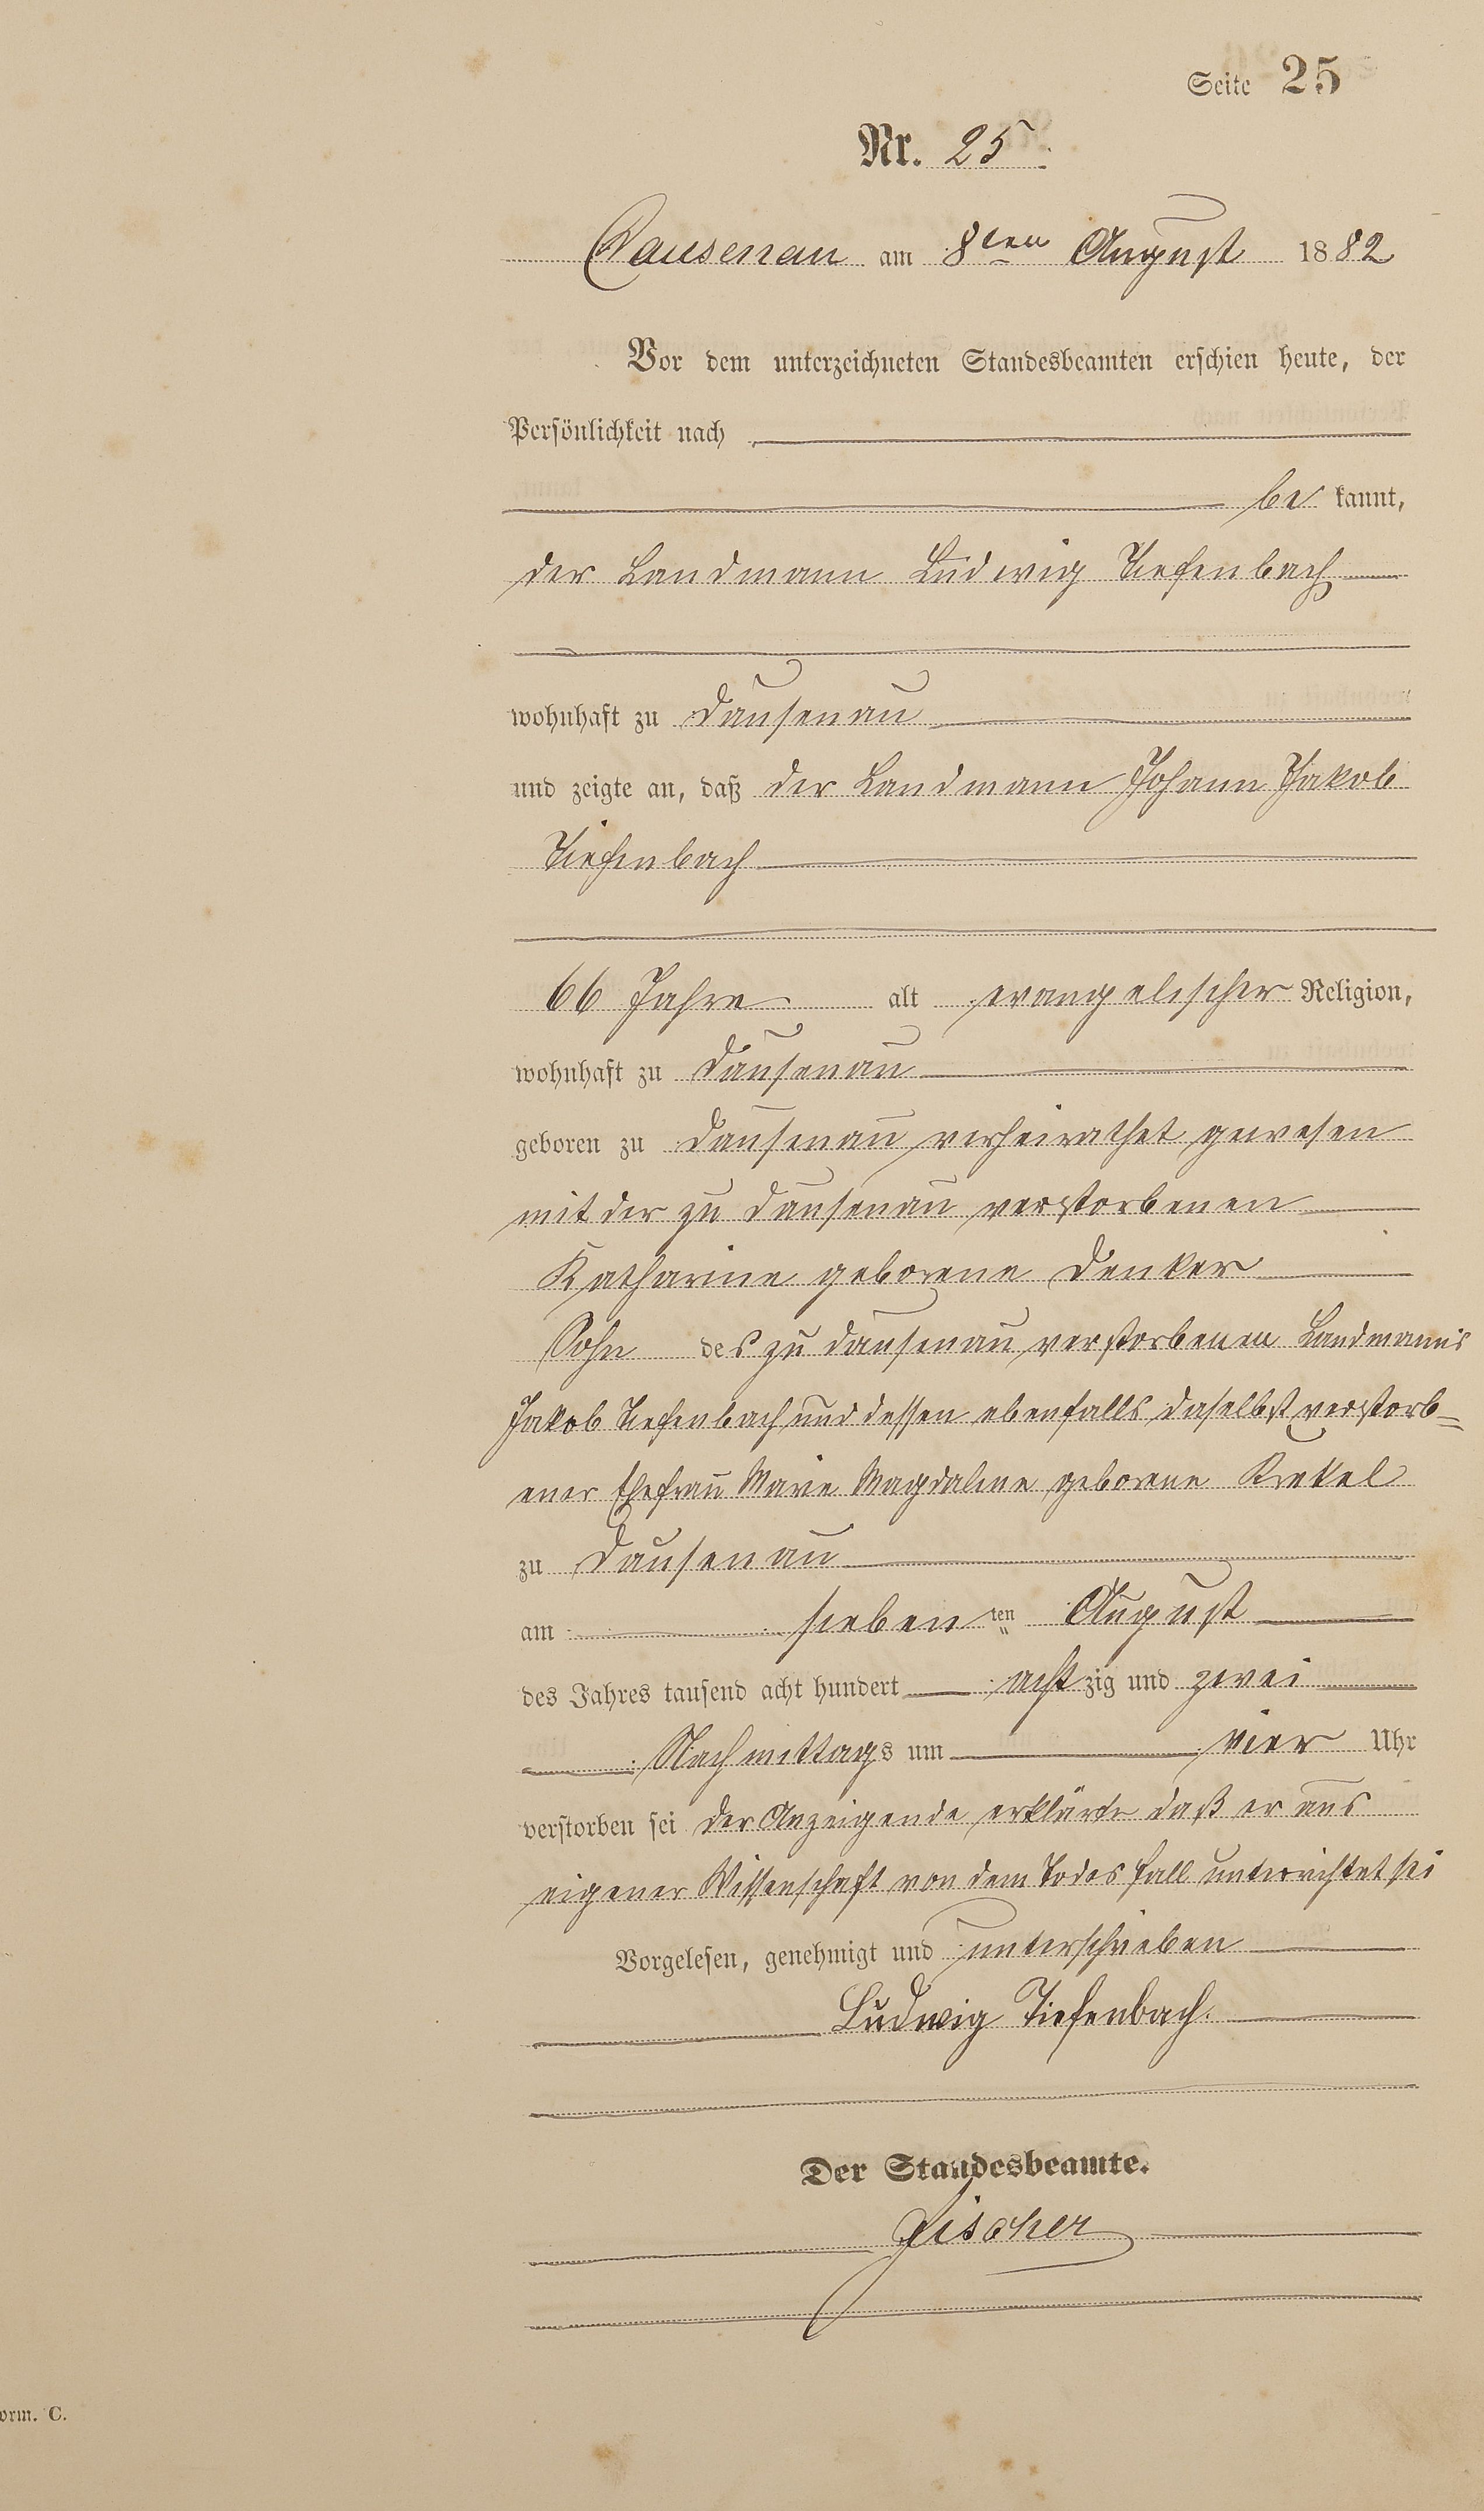 Seite 25
Nr. 25.
Dausenau am 8ten August 1882
Vor dem unterzeichneten Standesbeamten erschien heute, der
Persönlichkeit nach
be kannt,
der Landmann Ludwig Tiefenbach
wohnhaft zu Dausenau
und zeigte an, daß der Landmann Johann Jakob
Tiefenbach
66 Jahre alt evangelischer Religion,
wohnhaft zu Dausenau
geboren zu Dausenau verheirathet gewesen
mit der zu Dausenau verstorbenen
Katharine geborene Denker
Sohn des zu Dausenau verstorbenen Landmanns
Jakob Tiefenbach und dessen ebenfalls daselbst verstorb=
ener Ehefrau Marie Magdaline geborene Krekel
zu Dausenau
am sieben ten August
des Jahres tausend acht hundert acht zig und zwei
Nachmittags um vier Uhr
verstorben sei der Anzeigende erklärte daß er aus
eigener Wissenschaft von dem Todesfall unterrichtet sei
Vorgelesen, genehmigt und unterschrieben
Ludwig Tiefenbach.
Der Standesbeamte.
Fischer
orm. C.